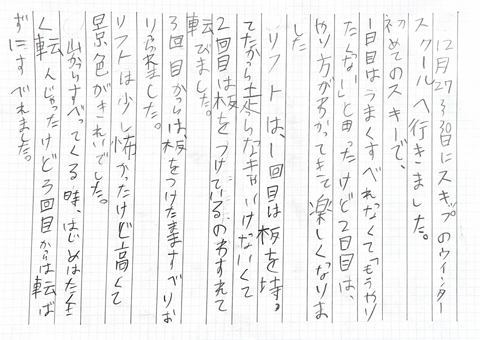 12月27〜30日にスキップのウインター
スクールへ行きました。
初めてのスキーで、
1日目はうまくすべれなくて「もうやり
たくない」と思ったけど2日目は、
やり方がわかってきて楽しくなりま
した
リフトは、1回目は板を持っ
てたから走らなきゃいけないくて
2回目は板をつけているのわすれて
転びました。
3回目からは、板をつけたまますべりお
りられました。
リフトは少し怖かったけど高くて
景色がきれいでした。
山からすべってくる時、はじめはたくさ
く転んじゃったけど3回目からは転ば
ずにすべれました。